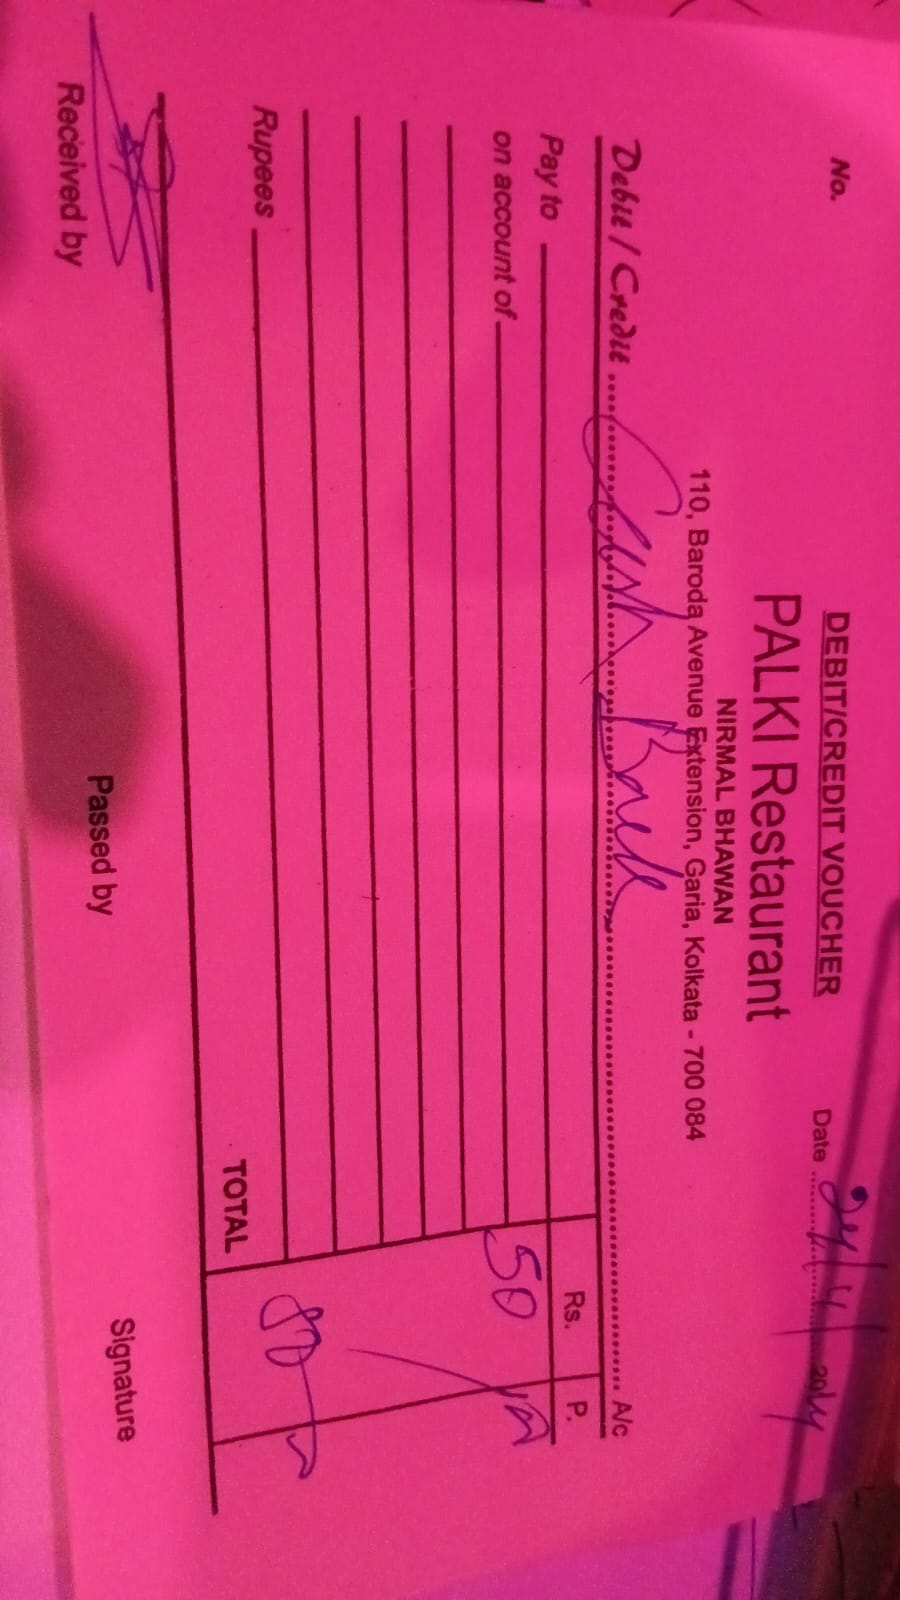 DEBIT/CREDIT VOUCHER
PALKI Restaurant
NIRMAL BHAWAN
110, Baroda Avenue Extension, Garia, Kolkata - 700 084
No.
Date 24/4/2014
Debit / Credit Cash Back A/c
Rs. P.
Pay to
on account of 50
Rupees
TOTAL 50
Received by Passed by Signature